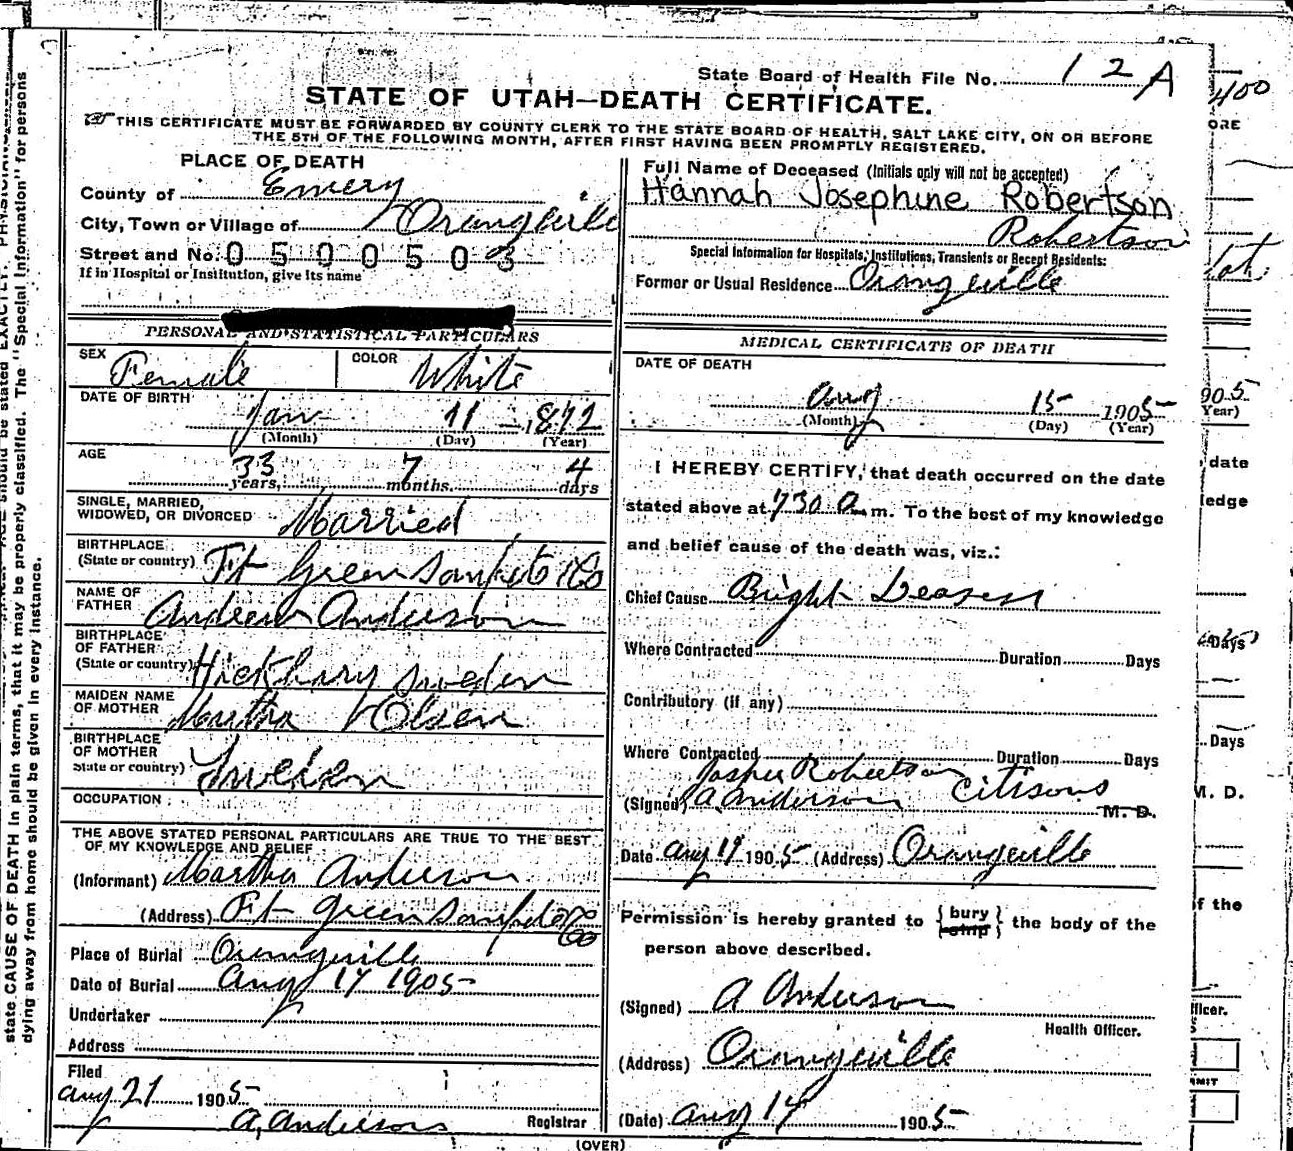 State Board of Health File No. 12A
STATE OF UTAH—DEATH CERTIFICATE.
THIS CERTIFICATE MUST BE FORWARDED BY COUNTY CLERK TO THE STATE BOARD OF HEALTH, SALT LAKE CITY, ON OR BEFORE
THE 5TH OF THE FOLLOWING MONTH, AFTER FIRST HAVING BEEN PROMPTLY REGISTERED.
PLACE OF DEATH
County of Emery
City, Town or Village of Orangeville
Street and No. 0500503
If in Hospital or Institution, give its name
PERSONAL AND STATISTICAL PARTICULARS
SEX Female COLOR White
DATE OF BIRTH
Jan 11 1872
(Month) (Day) (Year)
AGE
33 years, 7 months, 4 days
SINGLE, MARRIED,
WIDOWED, OR DIVORCED Married
BIRTHPLACE
(State or country) Ft Green Sanpete Co
NAME OF
FATHER Andrew Anderson
BIRTHPLACE
OF FATHER
(State or country) Sweden
MAIDEN NAME
OF MOTHER Martha Olsen
BIRTHPLACE
OF MOTHER
State or country) Sweden
OCCUPATION
THE ABOVE STATED PERSONAL PARTICULARS ARE TRUE TO THE BEST
OF MY KNOWLEDGE AND BELIEF
(Informant) Martha Anderson
(Address) Ft Green Sanpete Co
Place of Burial Orangeville
Date of Burial Aug 17 1905
Undertaker
Address
Filed
Aug 21 1905
A. Anderson Registrar
(OVER)
Full Name of Deceased (Initials only will not be accepted)
Hannah Josephine Robertson
Robertson
Special Information for Hospitals, Institutions, Transients or Recent Residents:
Former or Usual Residence Orangeville
MEDICAL CERTIFICATE OF DEATH
DATE OF DEATH
Aug 15 1905
(Month) (Day) (Year)
I HEREBY CERTIFY, that death occurred on the date
stated above at 730 a m. To the best of my knowledge
and belief cause of the death was, viz.:
Chief Cause Bright Deasess
Where Contracted Duration Days
Contributory (if any)
Where Contracted Duration Days
Robertson Citisons
(Signed) A. Anderson M. D.
Date Aug 1905 (Address) Orangeville
Permission is hereby granted to {bury ship} the body of the
person above described.
(Signed) A Anderson
Health Officer.
(Address) Orangeville
(Date) Aug 17 1905
state CAUSE OF DEATH in plain terms, that it may be properly classified. The "Special Information" for persons
dying away from home should be given in every instance.
400
ORE
905
Year)
date
ledge
Days
Days
M. D.
of the
ficer.